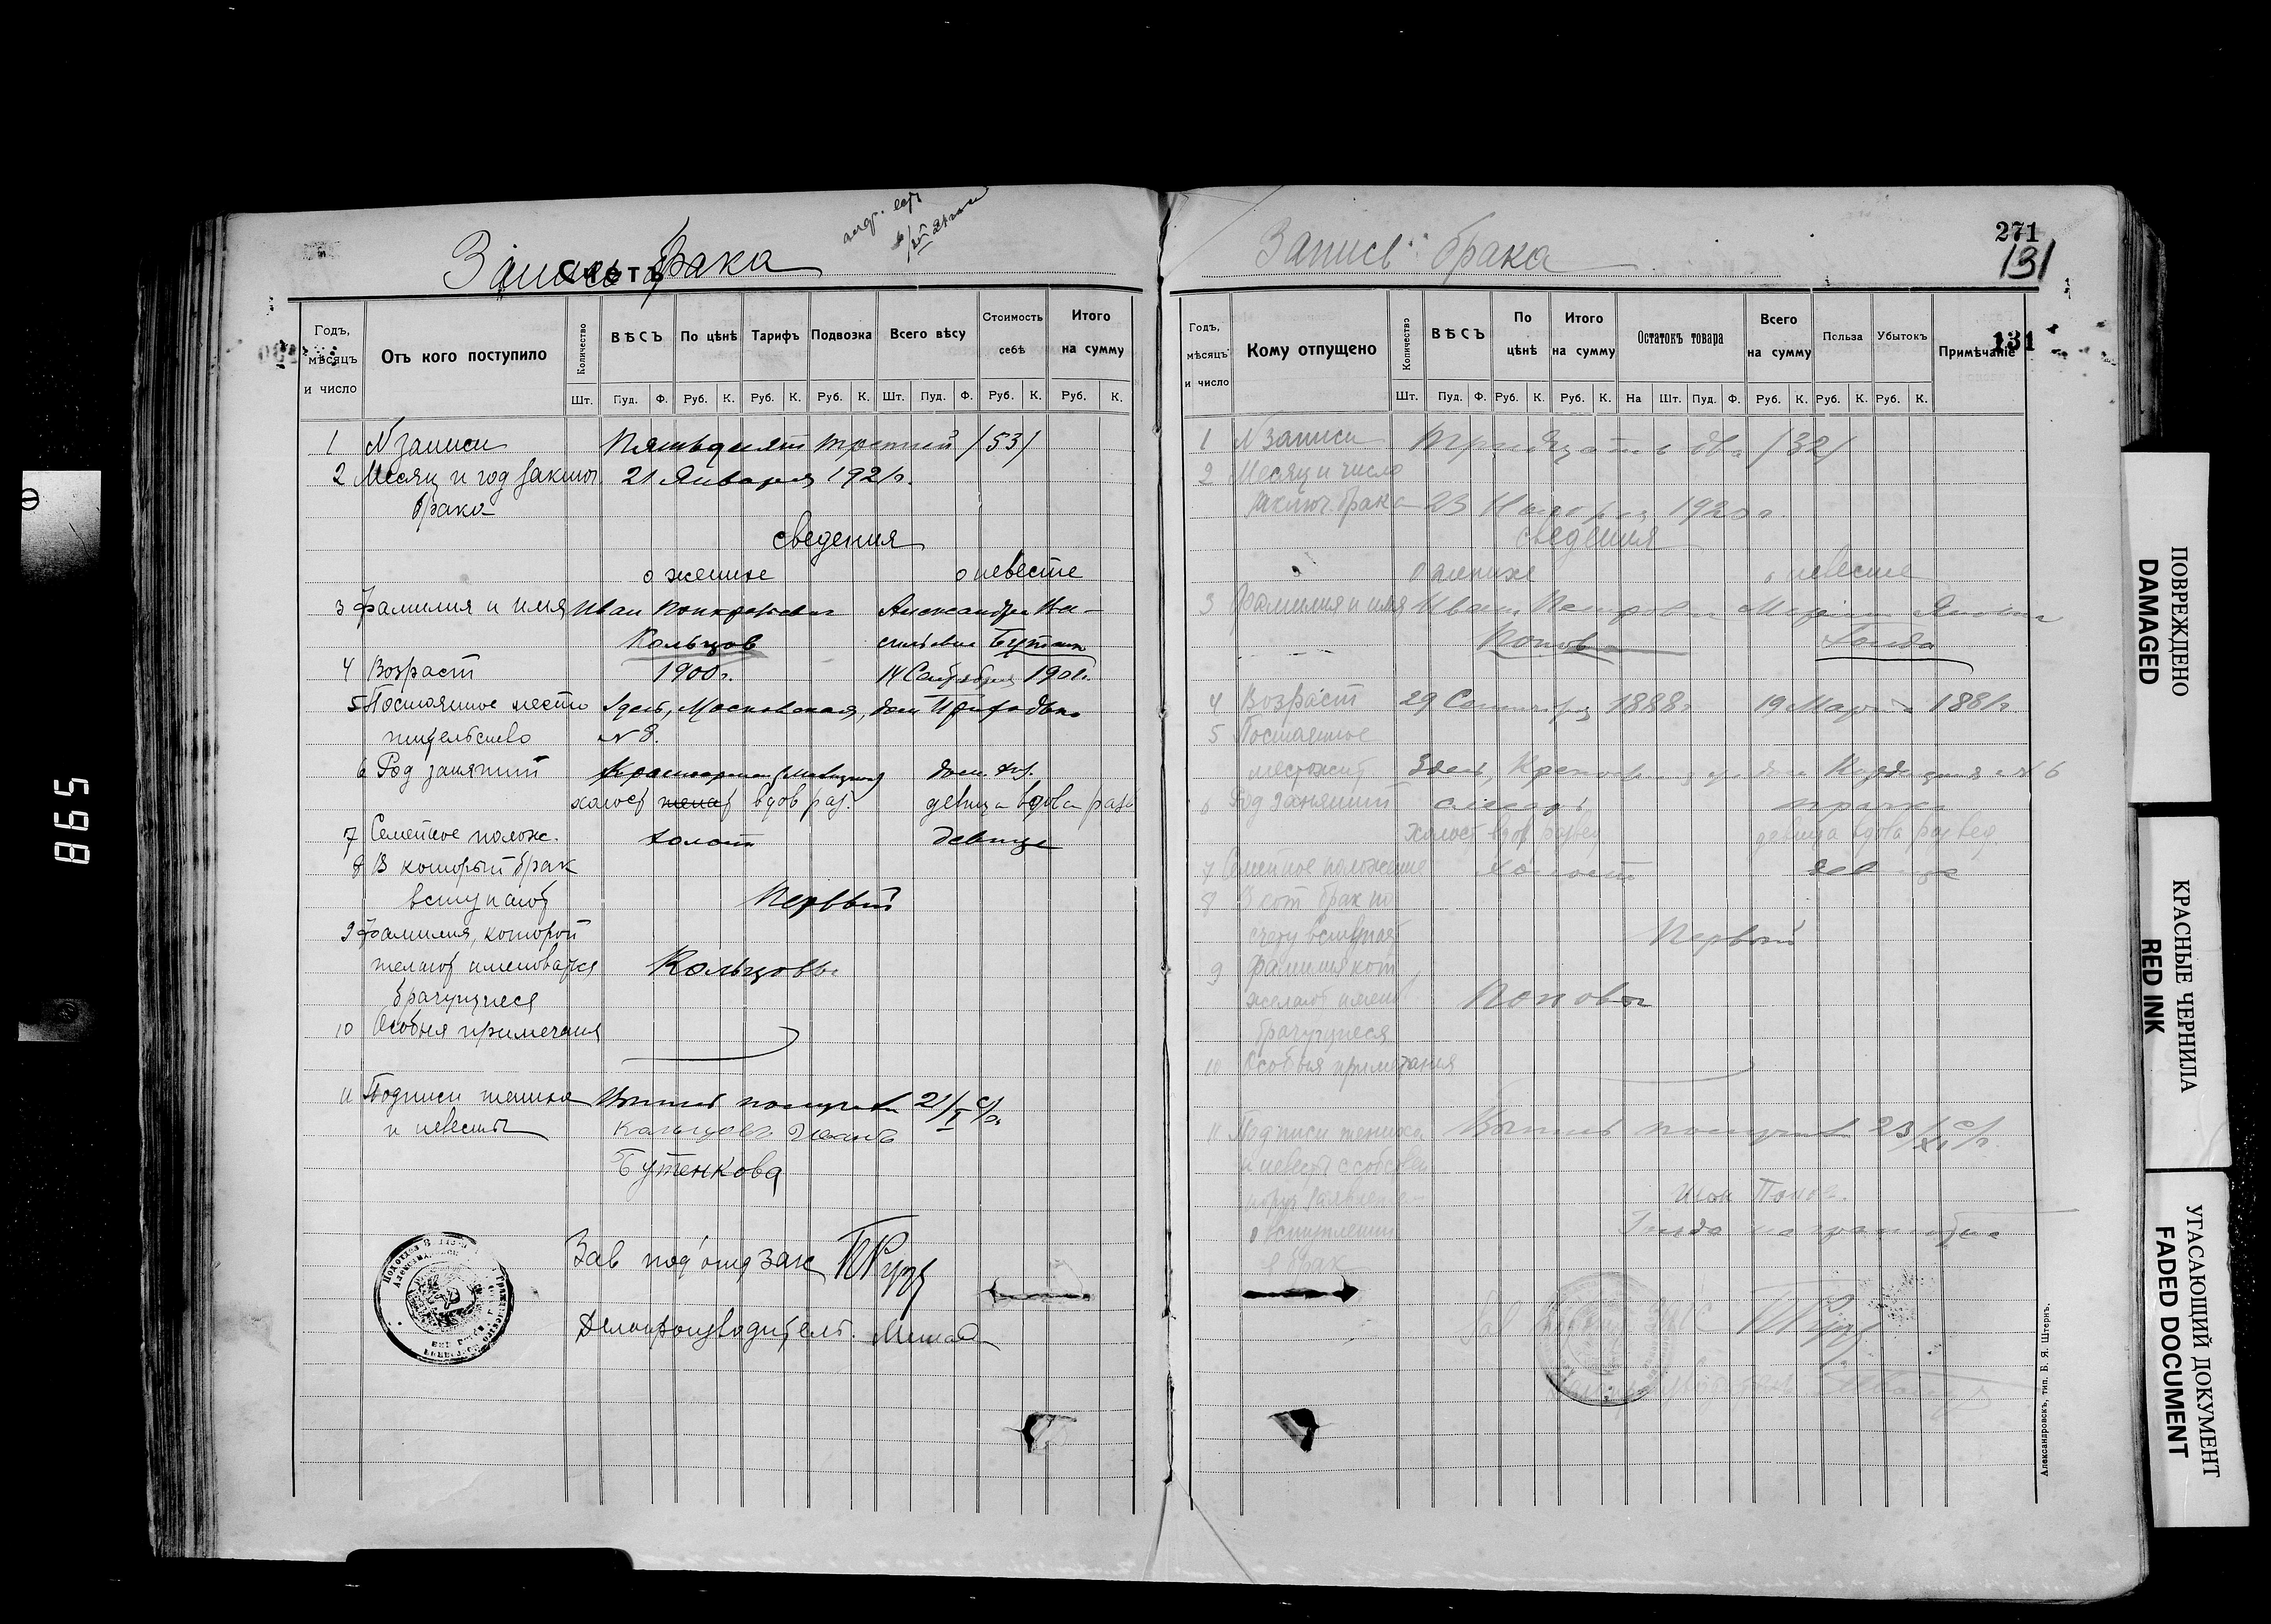 Запись брака
Счетъ
Годъ, мѣсяцъ и число
Отъ кого поступило
Количество
ВѢСЪ
По цѣнѣ
Тарифъ
Подвозка
Всего вѣсу
Стоимость себѣ
Итого на сумму
Шт. Пуд. Ф. Руб. К. Руб. К. Руб. К. Шт. Пуд. Ф. Руб. К. Руб. К.
1 N записи Пятьдесят третий /53/
2 Месяц и год заключ. 21 Января 1921г.
брака
сведения
о женихе о невесте
3 Фамилия и имя Иван Александра Ва-
Кольцов
4 Возраст 1900г. 14 1901г.
5 Постоянное место здесь, Московская, дом
жительство N 8.
6 Род занятий дом. хоз.
холост женат вдов раз. девица вдова разв
7 Семейное полож. холост девица
8 В который брак
вступают Первый
9 Фамилия, которой
желают именоваться Кольцовы
брачущиеся
10 Особыя примечания
11 Подписи жениха 21/I с/г.
и невесты Кольцов Иван
Бутенкова
Зав под'отд Загс
Делопроизводитель.
Запись брака
271
131
131
Годъ, мѣсяцъ и число
Кому отпущено
Количество
ВѢСЪ
По цѣнѣ
Итого на сумму
Остатокъ товара
Всего на сумму
Польза
Убытокъ
Примѣчаніе
Шт. Пуд. Ф. Руб. К. Руб. К. На Шт. Пуд. Ф. Руб. К. Руб. К. Руб. К.
1 N записи Тридцать два /32/
2 Месяц и число
заключ. брака 23 Ноября 1920г.
сведения
о женихе о невесте
3 Фамилия и имя Иван Петрович Мария
Попов
4 Возраст 29 Сентября 1888г 19 Марта 1881г.
5 Постоянное
местожит Здесь, дом N 6
6 Род занятий слесарь прачка
Холост вдов развед девица вдова развед.
7 Семейное положение холост девица
8 В кот брак по
счету вступают Первый
9 Фамилия кот
желают имен Поповы
брачущиеся
10 Особыя примечания
11 Подписи жениха 23/XI с/г.
и невесты
Иван Попов
о вступлении
в брак
Александровскъ, тип. Б. Я. Штернъ.
865
ПОВРЕЖДЕНО
DAMAGED
КРАСНЫЕ ЧЕРНИЛА
RED INK
УГАСАЮЩИЙ ДОКУМЕНТ
FADED DOCUMENT